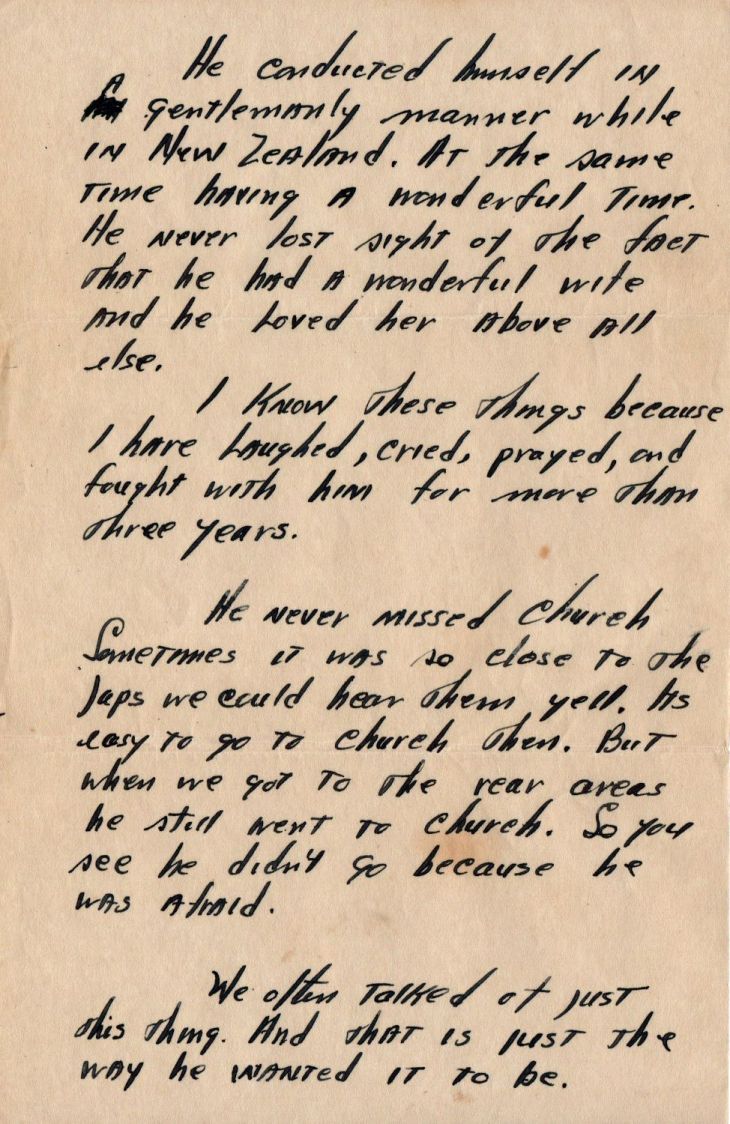 He conducted himself in
a gentlemanly manner while
in New Zealand. At the same
time having a wonderful time.
He never lost sight of the fact
that he had a wonderful wife
and he loved her above all
else.
I know these things because
I have laughed, cried, prayed, and
fought with him for more than
three years.
He never missed church
Sometimes it was so close to the
Japs we could hear them yell. Its
easy to go to church then. But
when we got to the rear areas
he still went to church. So you
see he didn't go because he
was afraid.
We often talked of just
this thing. And that is just the
way he wanted it to be.